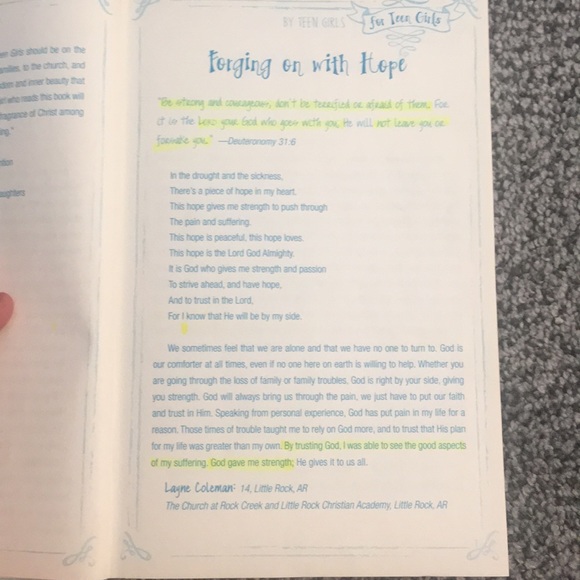 en Girls should be on the
amilies, to the church, and
dom and inner beauty that
irl who reads this book will
fragrance of Christ among
ing."
tion
aughters
BY TEEN GIRLS
for Teen Girls
Forging on with Hope
"Be strong and courageous, don't be terrified or afraid of them. For
it is the Lord your God who goes with you, He will not leave you or
forsake you." —Deuteronomy 31:6
In the drought and the sickness,
There's a piece of hope in my heart.
This hope gives me strength to push through
The pain and suffering.
This hope is peaceful, this hope loves.
This hope is the Lord God Almighty.
It is God who gives me strength and passion
To strive ahead, and have hope,
And to trust in the Lord,
For I know that He will be by my side.
We sometimes feel that we are alone and that we have no one to turn to. God is
our comforter at all times, even if no one here on earth is willing to help. Whether you
are going through the loss of family or family troubles, God is right by your side, giving
you strength. God will always bring us through the pain, we just have to put our faith
and trust in Him. Speaking from personal experience, God has put pain in my life for a
reason. Those times of trouble taught me to rely on God more, and to trust that His plan
for my life was greater than my own. By trusting God, I was able to see the good aspects
of my suffering. God gave me strength; He gives it to us all.
Layne Coleman: 14, Little Rock, AR
The Church at Rock Creek and Little Rock Christian Academy, Little Rock, AR